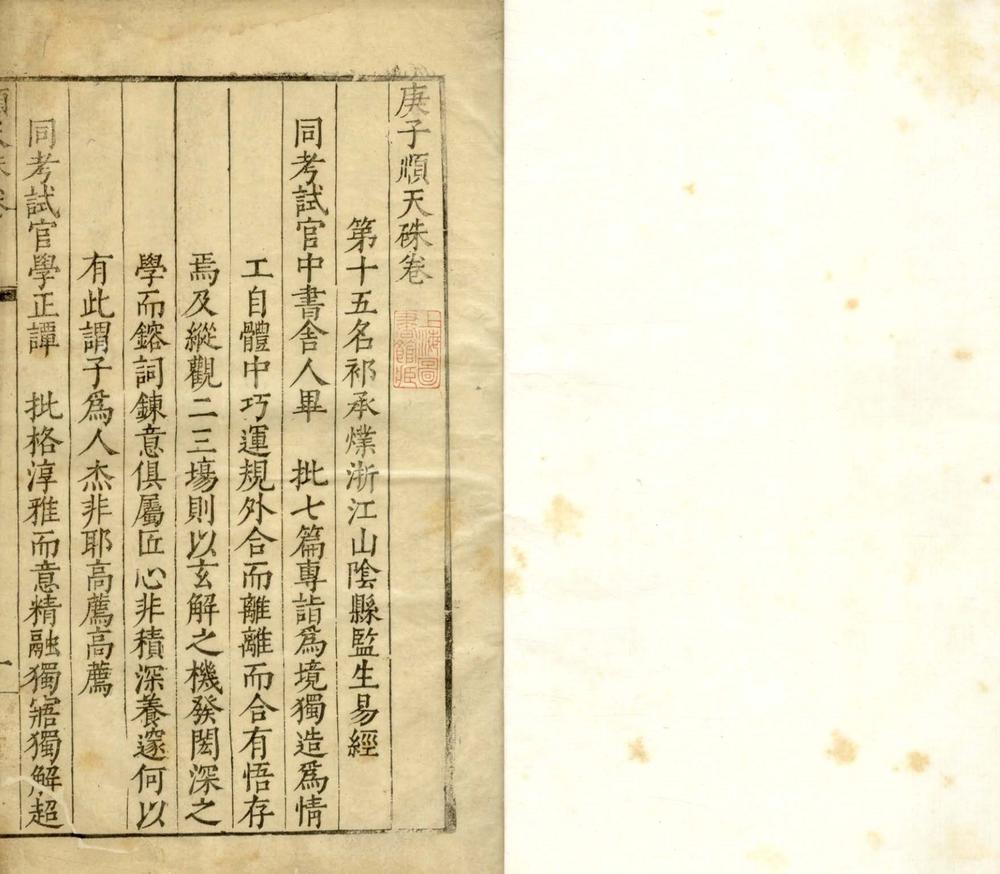 庚子順天硃卷
上海圖書館藏
第十五名祁承㸁浙江山陰縣監生易經
同考試官中書舍人畢　批七篇專詣爲境獨造爲情
工自體中巧運規外合而離離而合有悟存
焉及縱觀二三塲則以玄解之機發閎深之
學而鎔詞鍊意俱屬匠心非積深養邃何以
有此謂子爲人杰非耶高薦高薦
同考試官學正譚　批格淳雅而意精融獨寤獨解超
順天硃卷
一